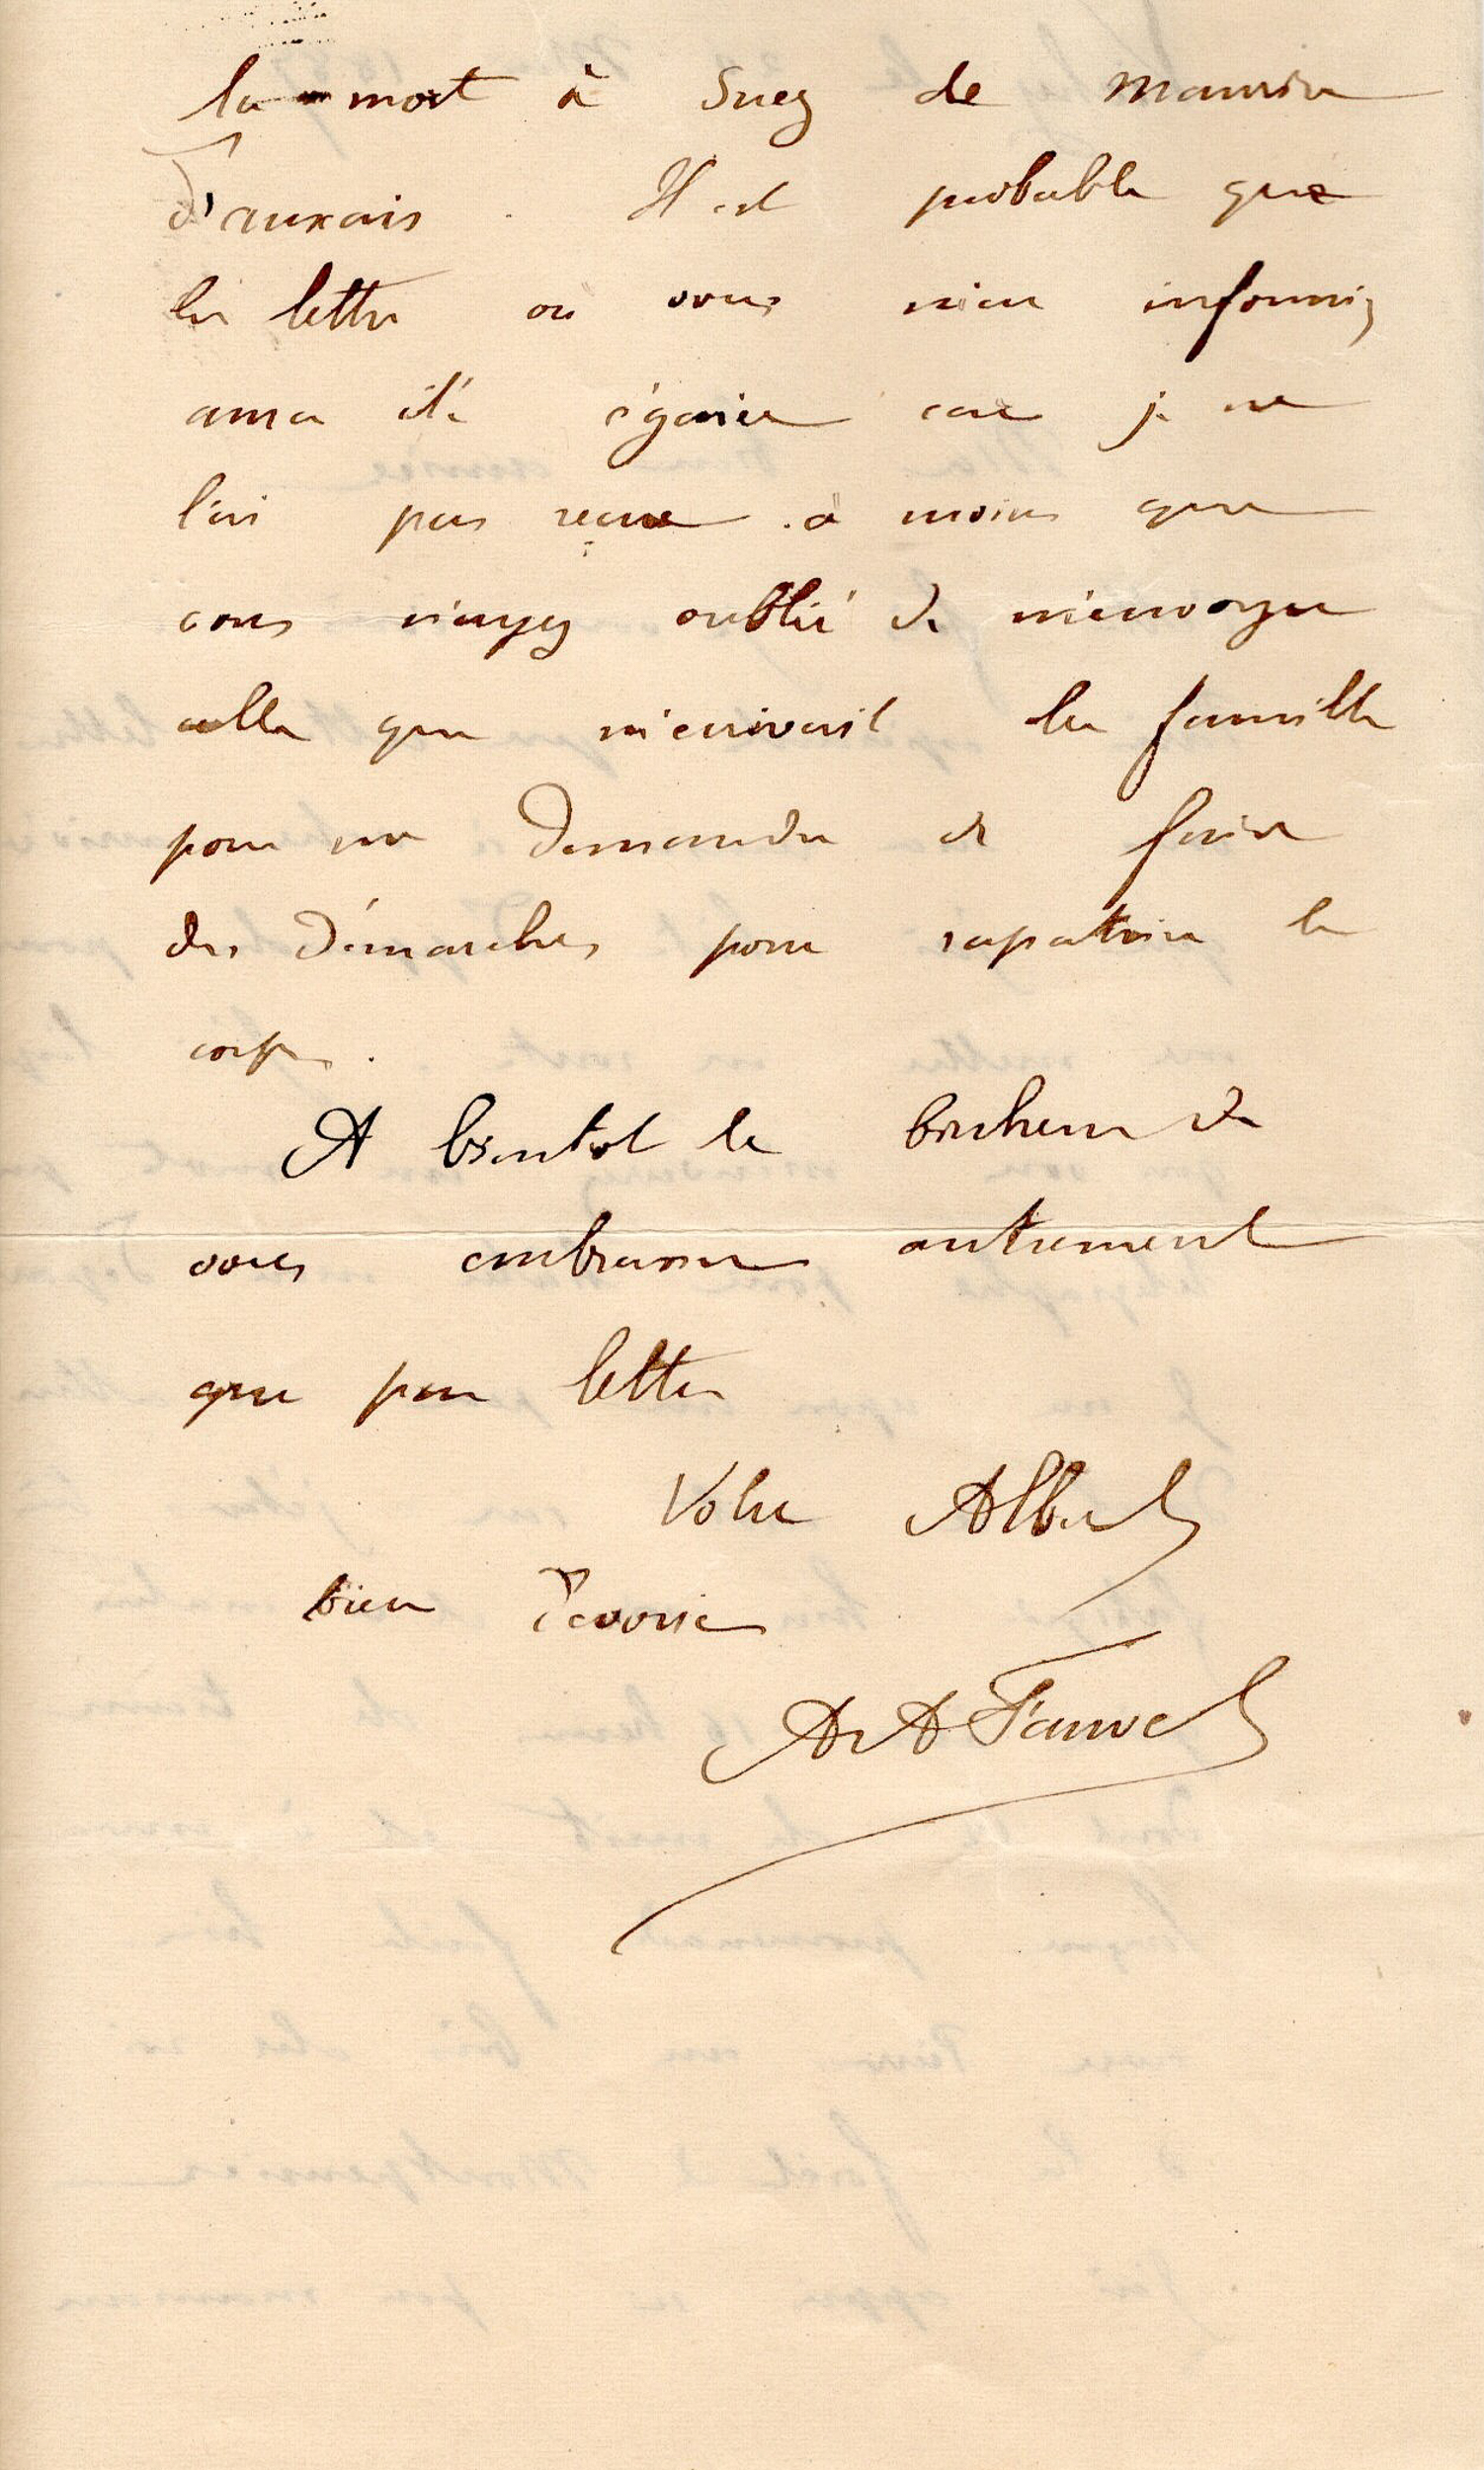 la mort à Suez de Maurice
d'Auxais. Il est probable que
la lettre où vous m'en informiez
aura été égarée car je ne
l'ai pas reçue. à moins que
vous n'ayez oublié de m'envoyer
celle que m'écrivait la famille
pour me demander de faire
des démarches pour rapatrier le
corps.
A bientot le bonheur de
vous embrasser autrement
que par lettre
Votre Albert
bien dévoué
A A Fauvel